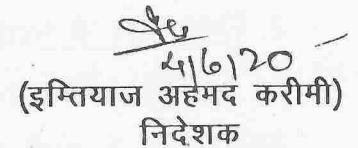 4/6/20
(इम्तियाज अहमद करीमी)
निदेशक